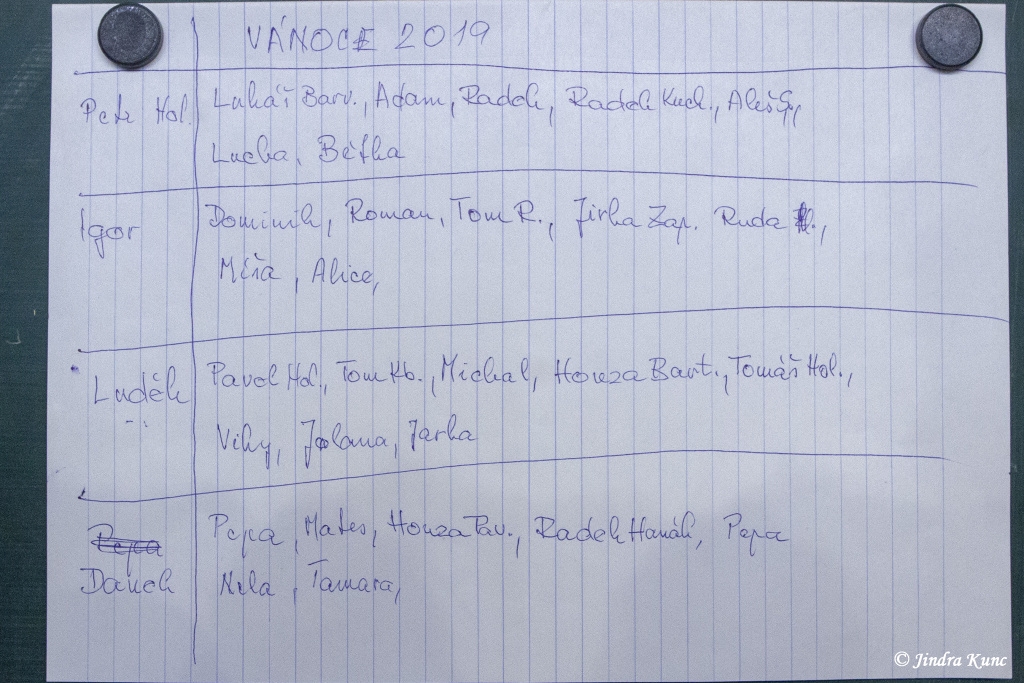 VÁNOCE 2019
Petr Hol. Lukáš Barv., Adam, Radek, Radek Kuch., Aleš G.,
Lucka, Béťka
Igor Dominik, Roman, Tom R., Jirka Zap. Ruda
Míša, Alice,
Luděk Pavel Hol., Tom Kb., Michal, Honza Bart., Tomáš Hol.,
Viky, Jolana, Jarka
Pepa Pepa, Mates, Honza Pav., Radek Hanák, Pepa
Danek Nela, Tamara,
© Jindra Kunc